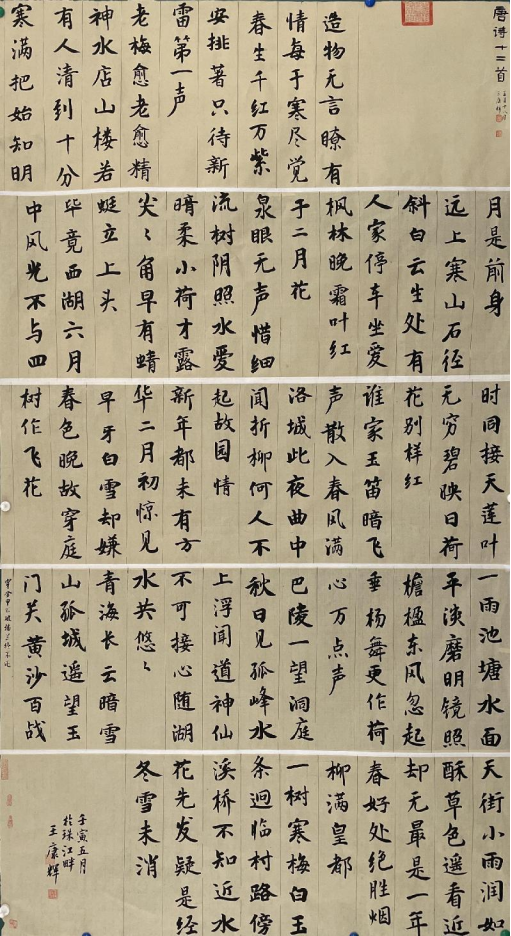 唐诗十二首
造物无言瞭有
情每于寒尽觉
春生千红万紫
安排著只待新
雷第一声
老梅愈老愈精
神水店山楼若
有人清到十分
寒满把始知明
月是前身
远上寒山石径
斜白云生处有
人家停车坐爱
枫林晚霜叶红
于二月花
泉眼无声惜细
流树阴照水爱
暗柔小荷才露
尖〻角早有蜻
蜓立上头
毕竟西湖六月
中风光不与四
时同接天莲叶
无穷碧映日荷
花别样红
谁家玉笛暗飞
声散入春风满
洛城此夜曲中
闻折柳何人不
起故园情
新年都未有方
华二月初惊见
早牙白雪却嫌
春色晚故穿庭
树作飞花
一雨池塘水面
平淡磨明镜照
檐楹东风忽起
垂杨舞更作荷
心万点声
巴陵一望洞庭
秋日见孤峰水
上浮闻道神仙
不可接心随湖
水共悠〻
青海长云暗雪
山孤城遥望玉
门关黄沙百战
穿金甲不破楼兰终不还
天街小雨润如
酥草色遥看近
却无最是一年
春好处绝胜烟
柳满皇都
一树寒梅白玉
条迥临村路傍
溪桥不知近水
花先发疑是经
冬雪未消
壬寅五月
於珠江畔
王康辉